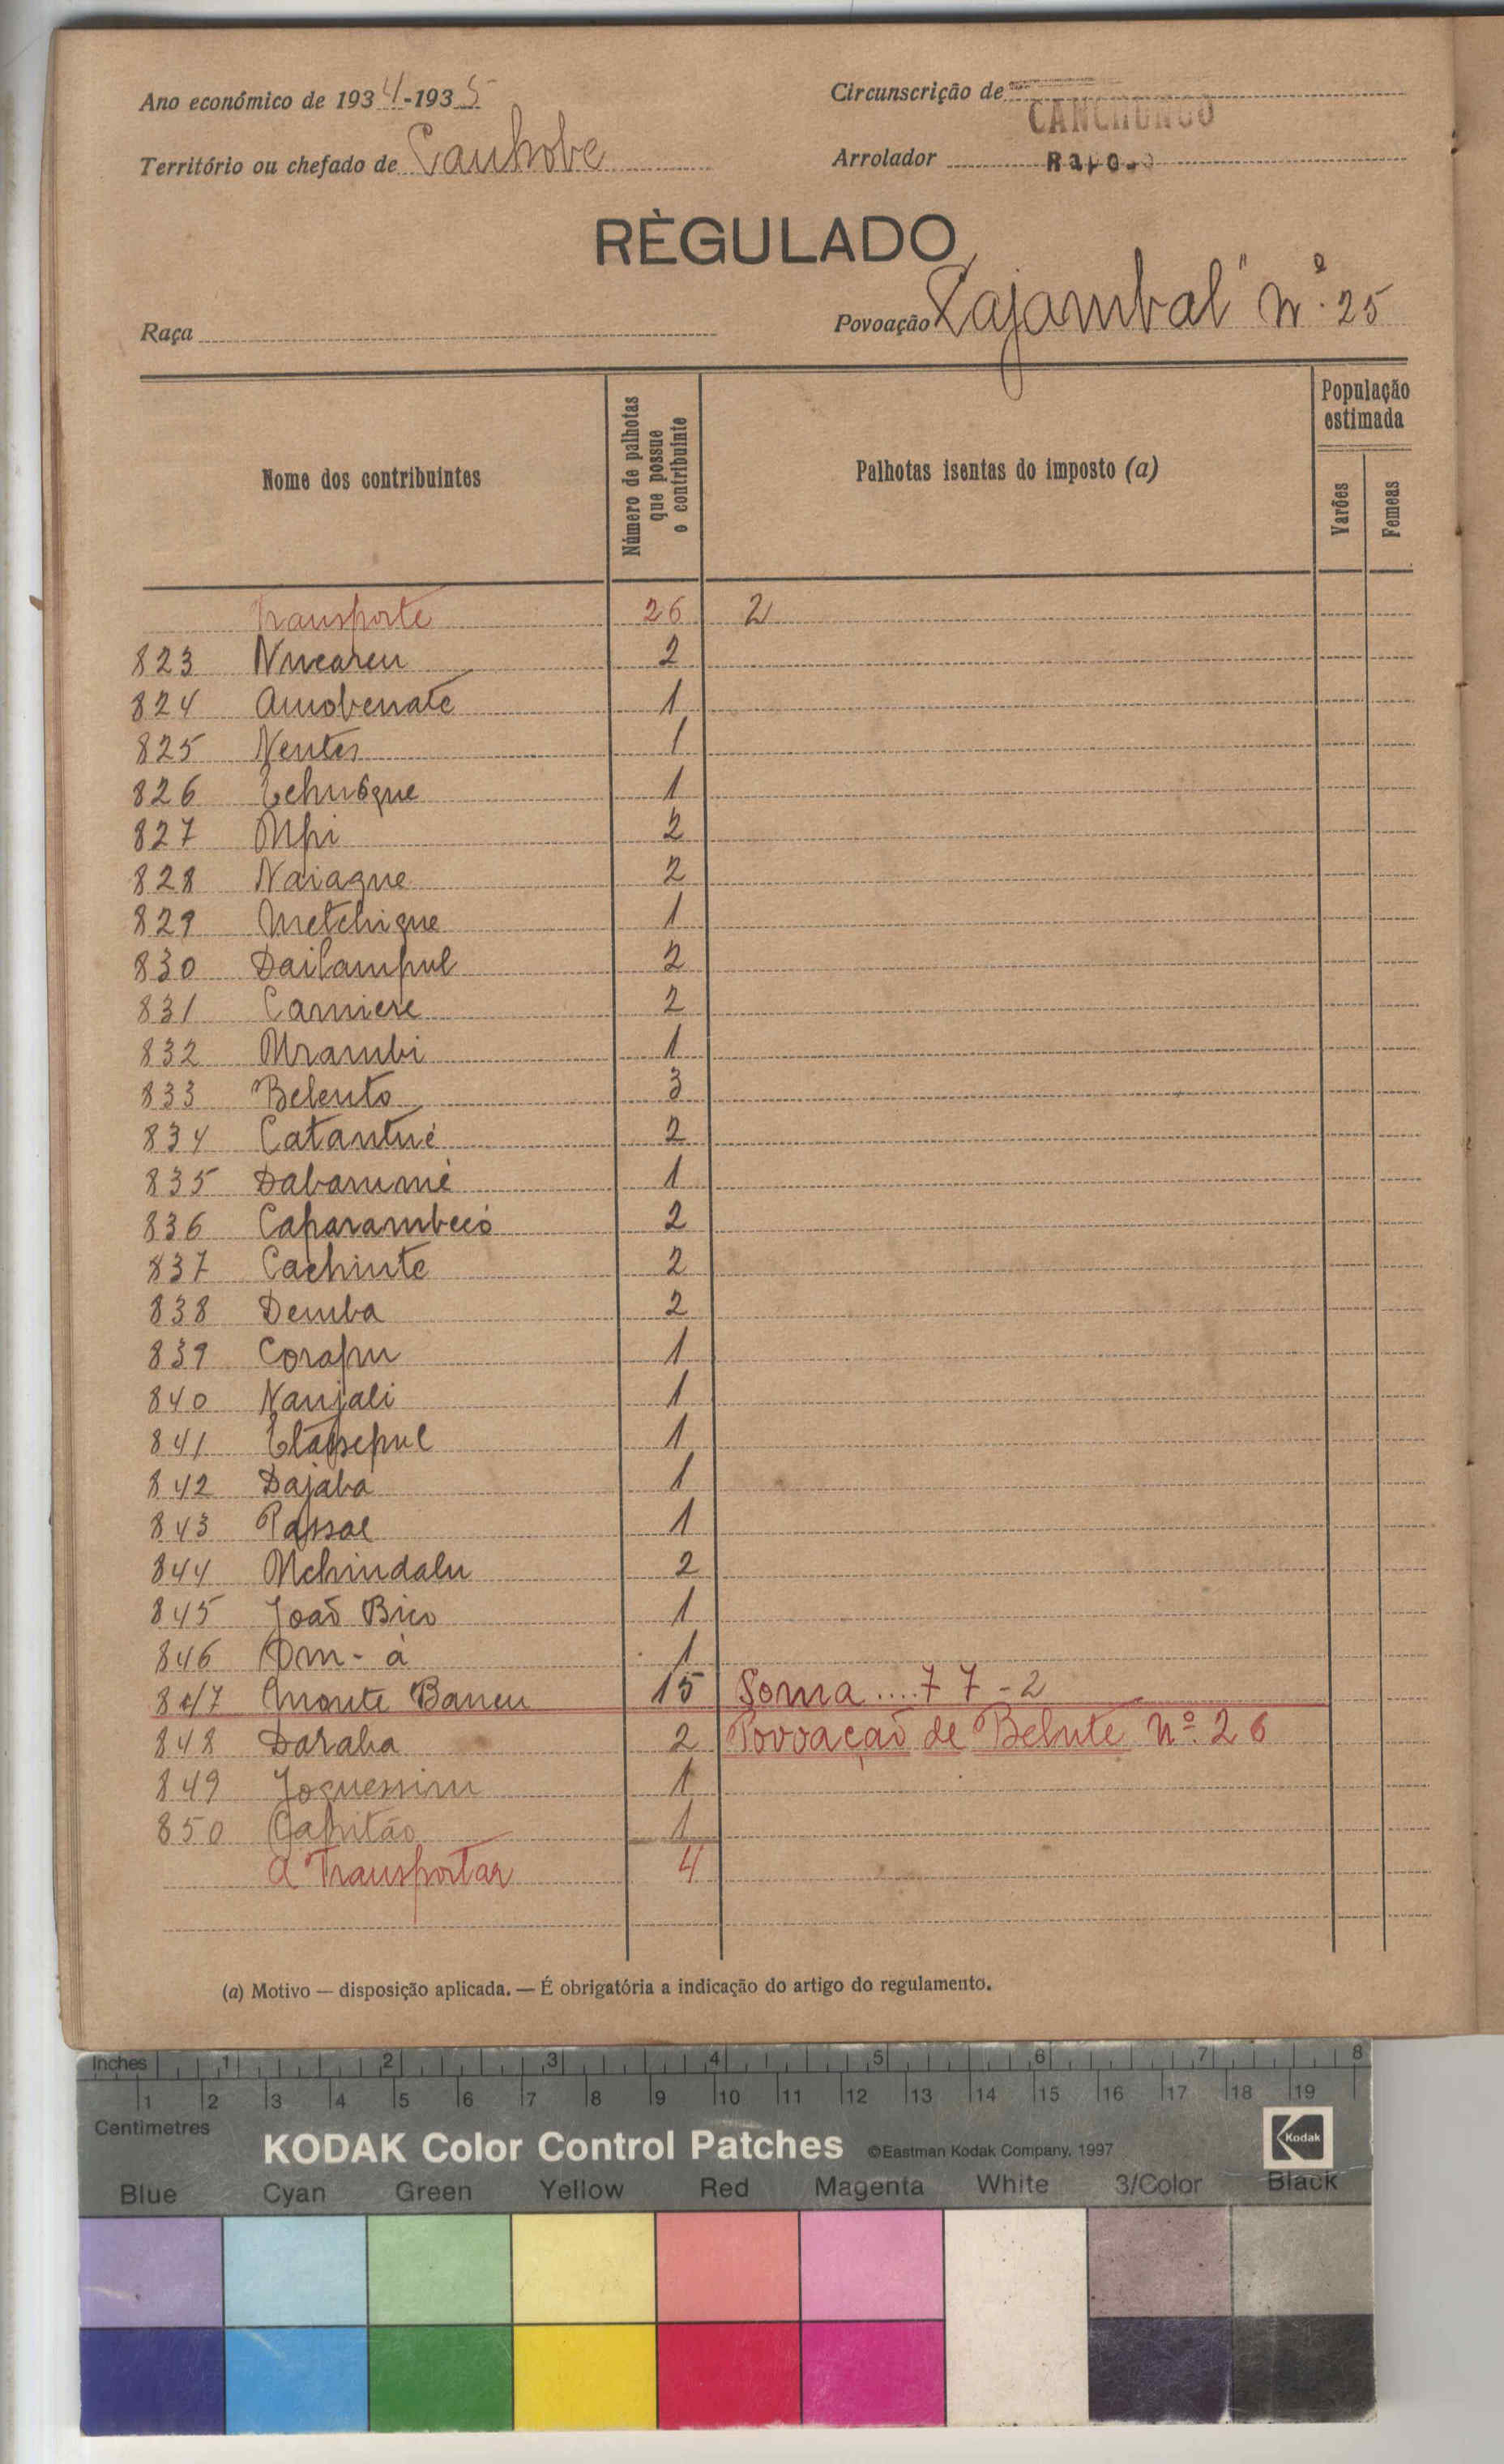 Ano económico de 1934-1935
Circunscrição de CANCHUNGO
Território ou chefado de Canhobe
Arrolador
RÈGULADO
Raça
Povoação Cajambal" nº 25
Nome dos contribuintes
Número de palhotas que possue o contribuinte
Palhotas isentas do imposto (a)
População estimada
Varões
Femeas
Transporte 26 2
823 Nucareu 2
824 Amobenate 1
825 Nentes 1
826 1
827 Mpi 2
828 Naiague 2
829 Metchigue 1
830 Dailampul 2
831 Carniere 2
832 Mrambi 1
833 Belento 3
834 Catantué 2
835 Dabanumé 1
836 Caparambecó 2
837 Cachinte 2
838 Demba 2
839 Corapu 1
840 Nanjali 1
841 1
842 Dajaba 1
843 Passal 1
844 Mchindalu 2
845 João Bico 1
846 Om-à 1
847 Monte Baneu 15 Soma....77-2
848 Daraba 2 Povoação de Belute Nº 26
849 Joguessim 1
850 Capitão 1
A Transportar 4
(a) Motivo — disposição aplicada. — É obrigatória a indicação do artigo do regulamento.
Inches 1 2 3 4 5 6 7 8
1 2 3 4 5 6 7 8 9 10 11 12 13 14 15 16 17 18 19
Centimetres
KODAK Color Control Patches ©Eastman Kodak Company, 1997 Kodak
Blue Cyan Green Yellow Red Magenta White 3/Color Black